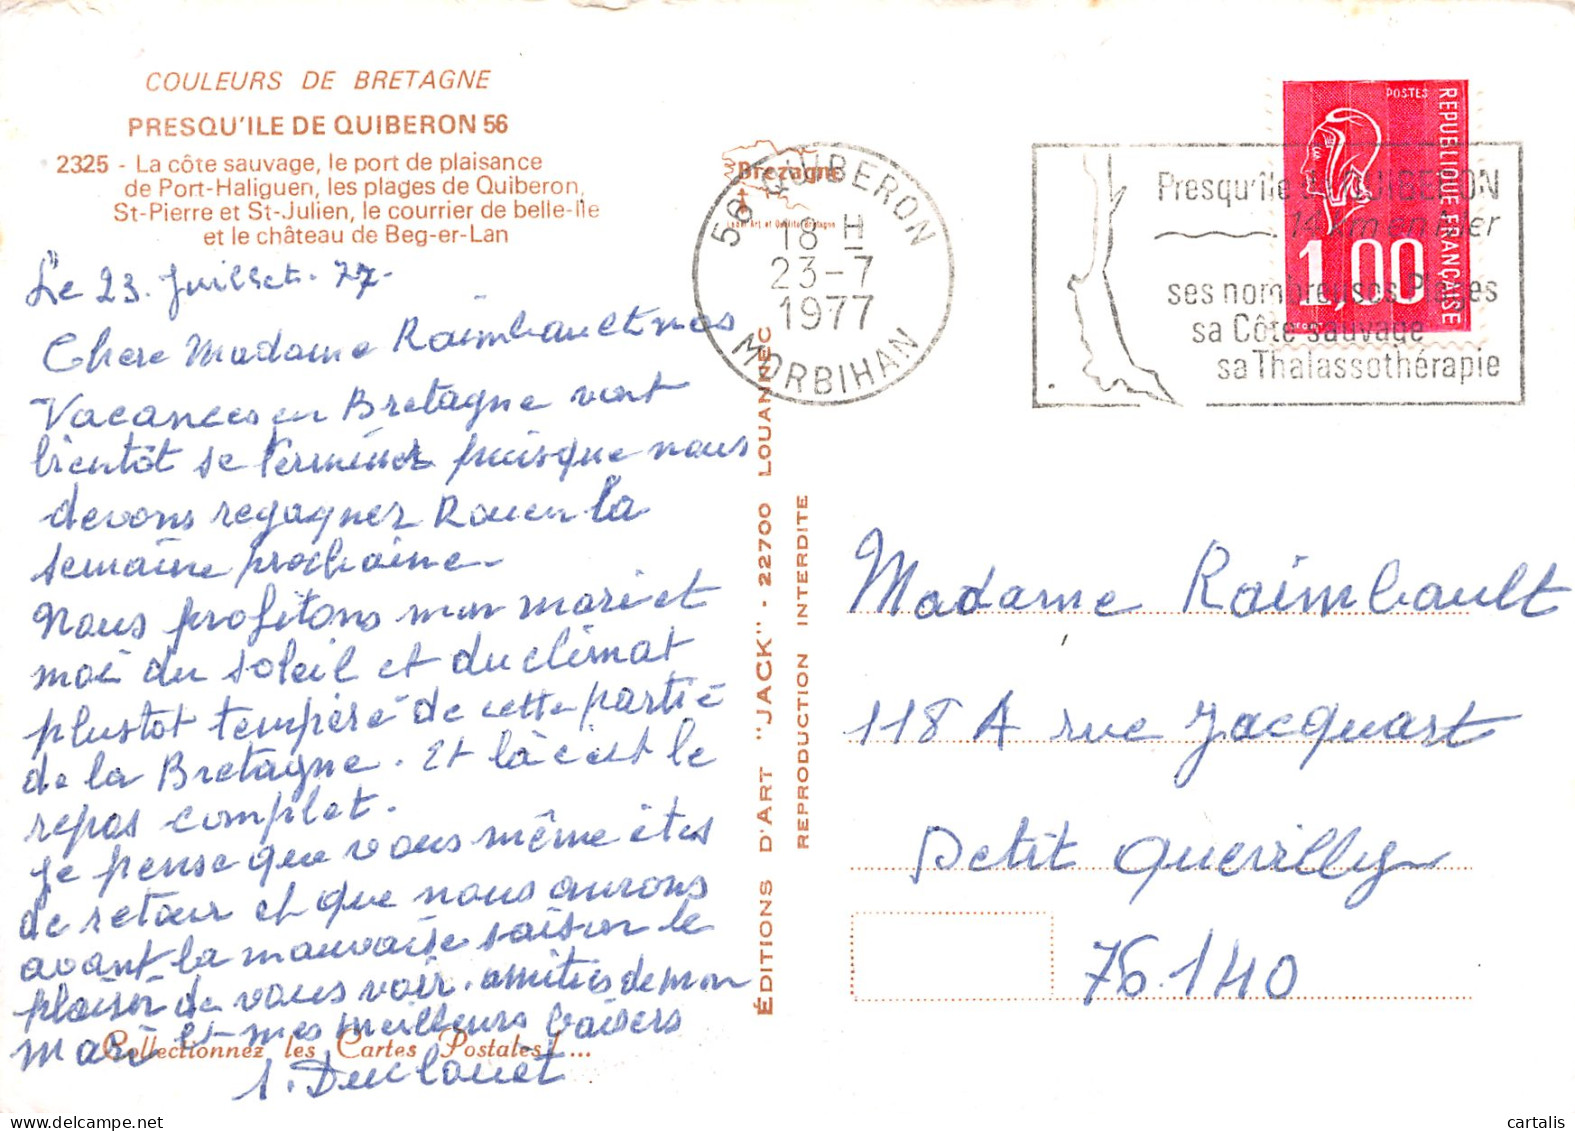 COULEURS DE BRETAGNE
PRESQU'ILE DE QUIBERON 56
2325 - La côte sauvage, le port de plaisance
de Port-Haliguen, les plages de Quiberon,
St-Pierre et St-Julien, le courrier de belle-Ile
et le château de Beg-er-Lan
Le 23. Juillet. 77-
Chere Madame Raimbault nos
Vacances en Bretagne vont
bientôt se terminer puisque nous
devons regagner Rouen la
semaine prochaine-
Nous profitons mon mari et
moi du soleil et du climat
plustot tempéré de cette partie
de la Bretagne. Et là c'est le
repos complet.
Je pense que vous même êtes
de retour et que nous aurons
avant la mauvaise saison le
plaisir de vous voir. amitiés de mon
mari et mes meilleurs baisers
Collectionnez les Cartes Postales !...
S. Duclouet
Bretagne
56 QUIBERON
18 H
23-7
1977
MORBIHAN
ÉDITIONS D'ART "JACK" - 22700 LOUANNEC
REPRODUCTION INTERDITE
Presqu'île de QUIBERON
14 Km en Mer
ses nombreuses Plages
sa Côte sauvage
sa Thalassothérapie
POSTES
REPUBLIQUE FRANÇAISE
1,00
Madame Raimbault
118 A rue Jacquart
Petit Quevilly
76.140
cartalis